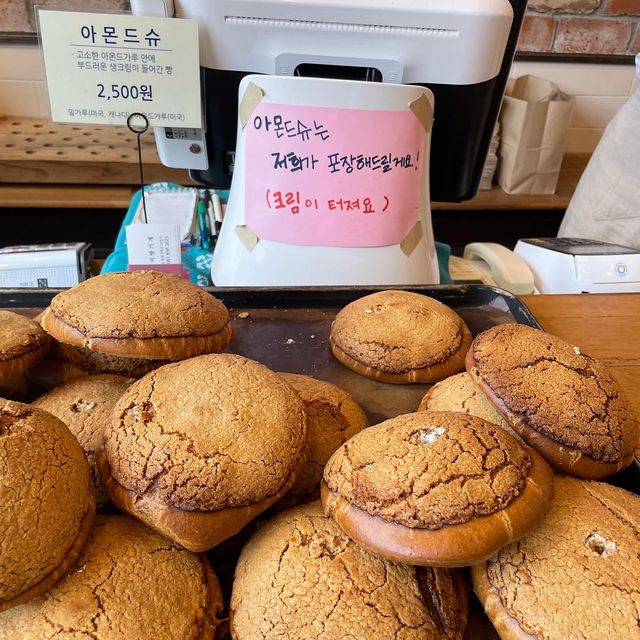 아몬드슈
고소한 아몬드가루 안에
부드러운 생크림이 들어간 빵
2,500원
밀가루(미국, 캐나다
드가루(미국)
아몬드슈는
저희가 포장해드릴게요!
(크림이 터져요)